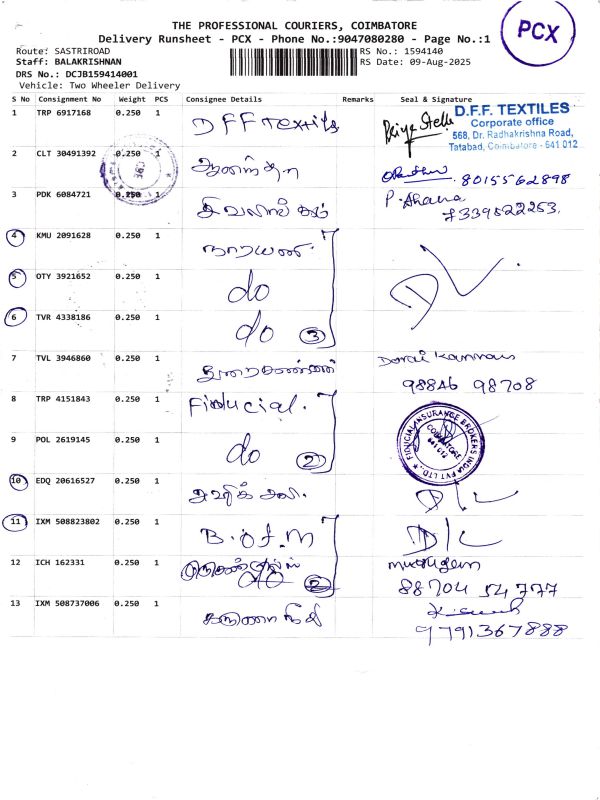 THE PROFESSIONAL COURIERS, COIMBATORE
Delivery Runsheet - PCX - Phone No.:9047080280 - Page No.:1
PCX
Route: SASTRIROAD
RS No.: 1594140
Staff: BALAKRISHNAN
RS Date: 09-Aug-2025
DRS No.: DCJB159414001
Vehicle: Two Wheeler Delivery
S No Consignment No Weight PCS Consignee Details Remarks Seal & Signature
1 TRP 6917168 0.250 1 DFF Textiles
D.F.F. TEXTILES
Corporate office
568, Dr. Radhakrishna Road,
Tatabad, Coimbatore - 641 012
2 CLT 30491392 0.250 1 8015562898
3 PDK 6084721 0.250 1 P. Dhana
7339522253
4 KMU 2091628 0.250 1
5 OTY 3921652 0.250 1 do
6 TVR 4338186 0.250 1 do 3
7 TVL 3946860 0.250 1 Dorai Kannan
98846 98708
8 TRP 4151843 0.250 1 Fiducial.
FIDUCIAL INSURANCE BROKERS INDIA PVT LTD.
COIMBATORE
641 012
9 POL 2619145 0.250 1 do 2
10 EDQ 20616527 0.250 1 D/L
11 IXM 508823802 0.250 1 B.of.M D/L
12 ICH 162331 0.250 1 do 2 murugan
88704 54777
13 IXM 508737006 0.250 1
9791367888